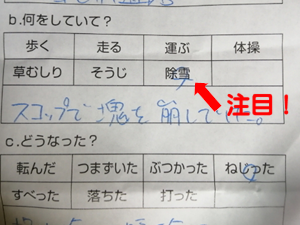 b.何をしていて？
歩く 走る 運ぶ 体操
草むしり そうじ 除雪
注目！
スコップで塊を崩していた。
c.どうなった？
転んだ つまずいた ぶつかった ねじった
すべった 落ちた 打った